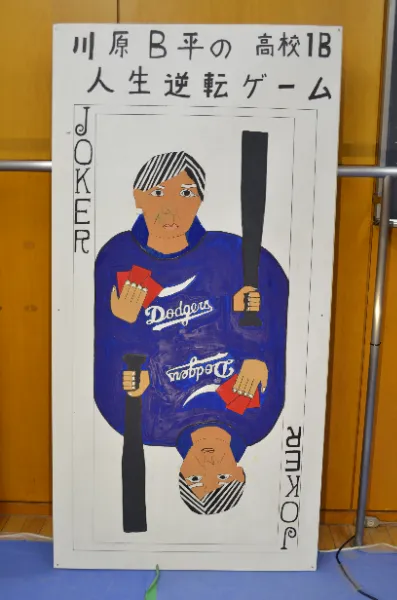 川原B平の 高校1B
人生逆転ゲーム
JOKER
Dodgers
Dodgers
JOKER